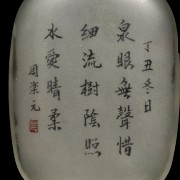 丁丑冬日
泉眼無聲惜
細流樹陰照
水愛晴柔
周樂元